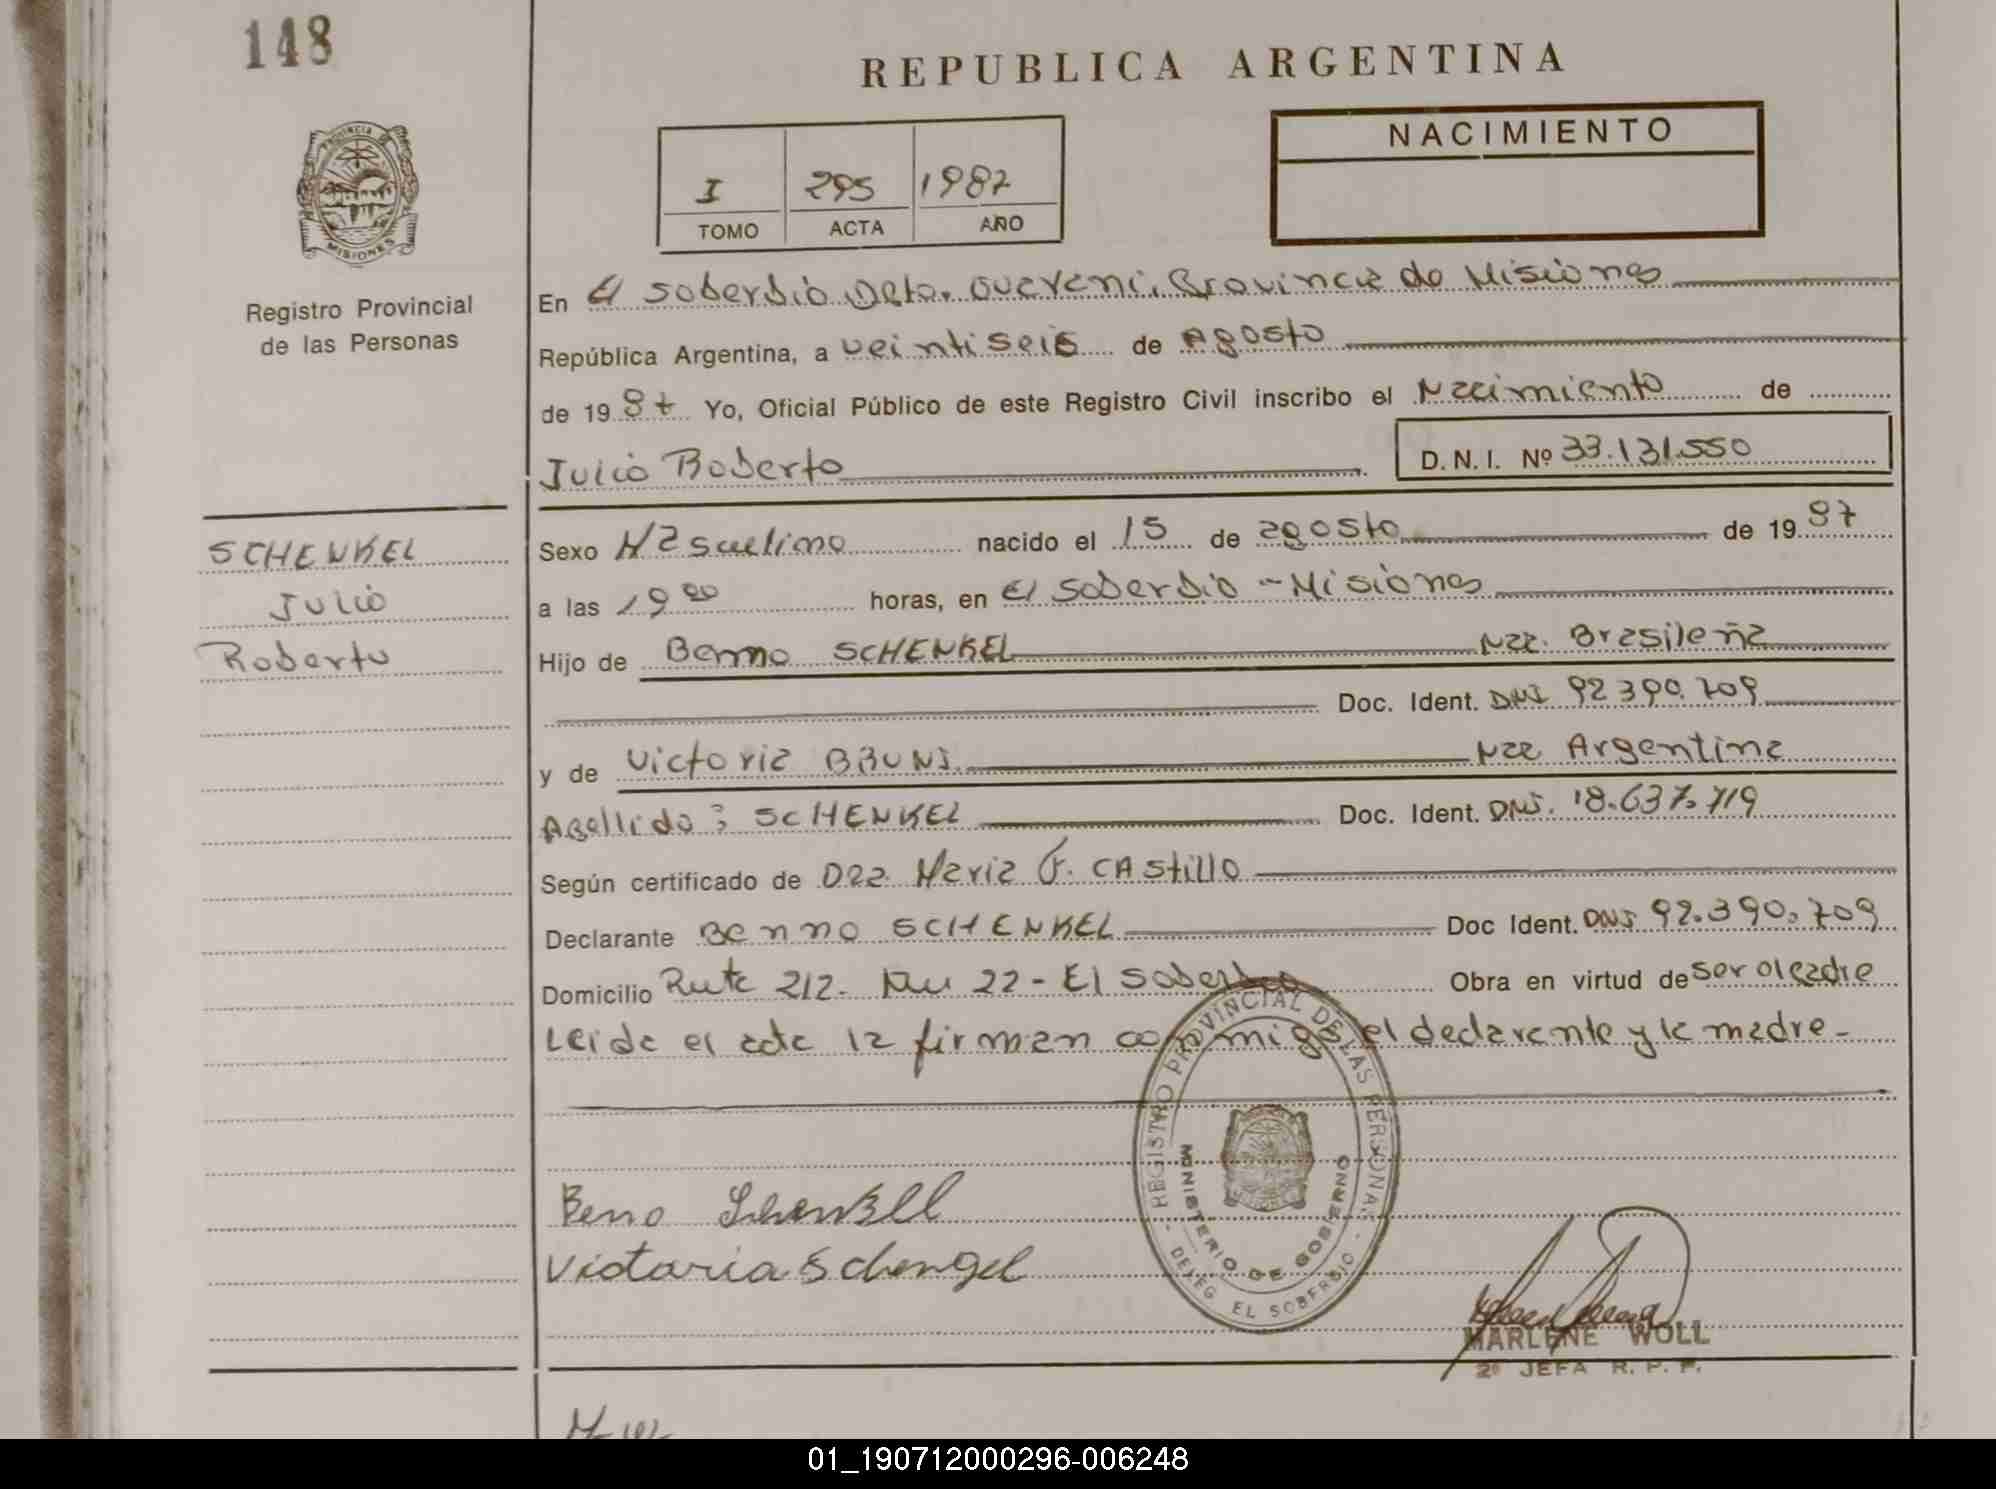 148
REPUBLICA ARGENTINA
NACIMIENTO
I 295 1987
TOMO ACTA AÑO
PROVINCIA DE MISIONES
Registro Provincial
de las Personas
En El Soberbio Dpto. Guarani, Provincia de Misiones
República Argentina, a veintiseis de Agosto
de 1987 Yo, Oficial Público de este Registro Civil inscribo el Nacimiento de
Julio Roberto D.N.I. Nº 33.131.550
SCHENKEL
Julio
Roberto
Sexo Masculino nacido el 15 de agosto de 1987
a las 19 00 horas, en El Soberbio - Misiones
Hijo de Benno SCHENKEL Nac. Brasileña
Doc. Ident. DNI 92390.709
y de Victoria BRUNI Nac Argentina
Apellido: SCHENKEL Doc. Ident. DNI. 18.637.719
Según certificado de Dra. Maria F. CAStillo
Declarante Benno SCHENKEL Doc Ident. DNI 92.390.709
Domicilio Ruta 212. Km 22 - El Soberbio Obra en virtud de ser el padre
Leida el acta la firman conmigo el declarante y la madre -
REGISTRO PROVINCIAL DE LAS PERSONAS
MINISTERIO DE GOBIERNO
- DELEG. EL SOBERBIO -
Beno Schenkell
Victoria Schengel
MARLENE WOLL
2º JEFA R. P. P.
01_190712000296-006248